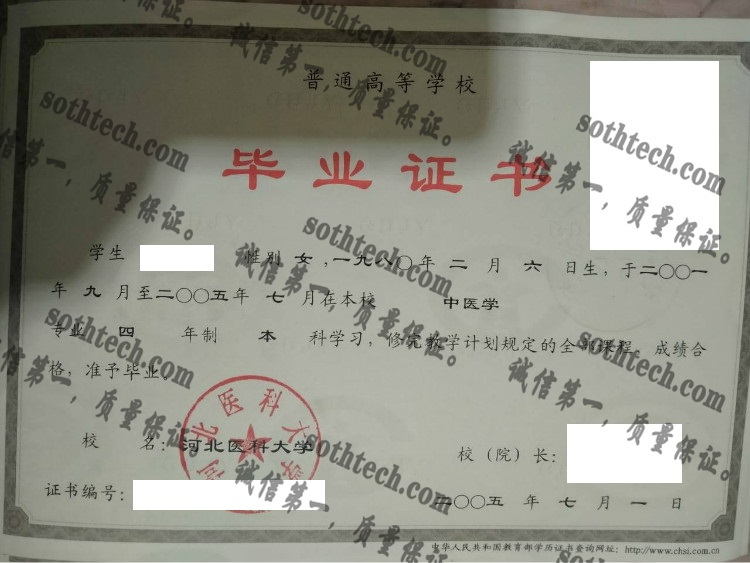 普通高等学校
毕业证书
学生 性别 女,一九八〇年 二 月 六 日生,于二〇〇一
年 九 月至二〇〇五年 七 月在本校 中医学
专业 四 年制 本 科学习,修完教学计划规定的全部课程,成绩合
格,准予毕业。
校 名:河北医科大学
河北医科大学
校(院)长:
证书编号:
二〇〇五 年 七 月 一 日
中华人民共和国教育部学历证书查询网址:http://www.chsi.com.cn
sothtech.com
诚信第一,质量保证。
sothtech.com
诚信第一,质量保证。
sothtech.com
诚信第一,质量保证。
sothtech.com
诚信第一,质量保证。
sothtech.com
诚信第一,质量保证。
sothtech.com
诚信第一,质量保证。
sothtech.com
诚信第一,质量保证。
sothtech.com
诚信第一,质量保证。